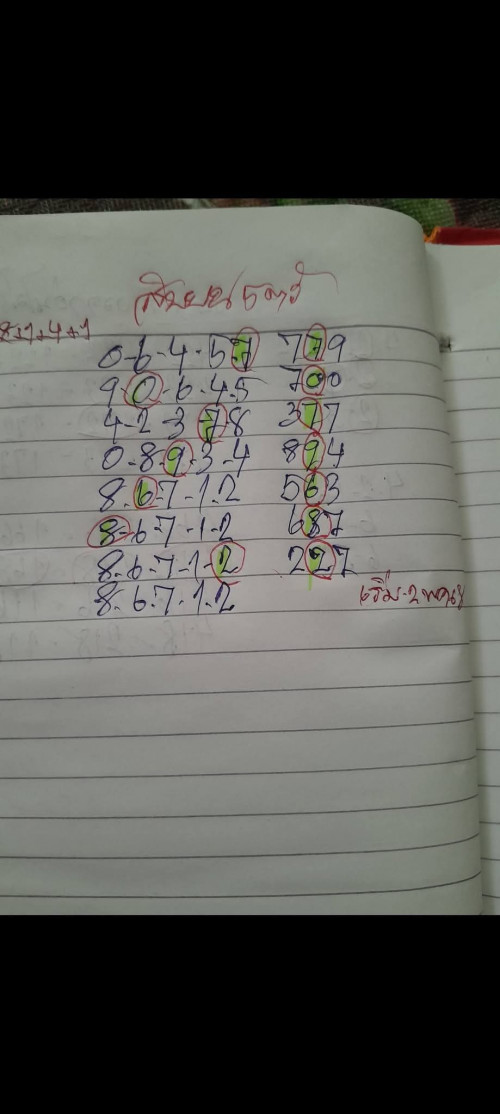 สิบบน 5 ตัว
8+7+4+1
0-6-4-5-7 779
9-0-6-4-5 700
4-2-3-7-8 377
0-8-9-3-4 894
8-6-7-1-2 563
8-6-7-1-2 687
8-6-7-1-2 227
8-6-7-1-2